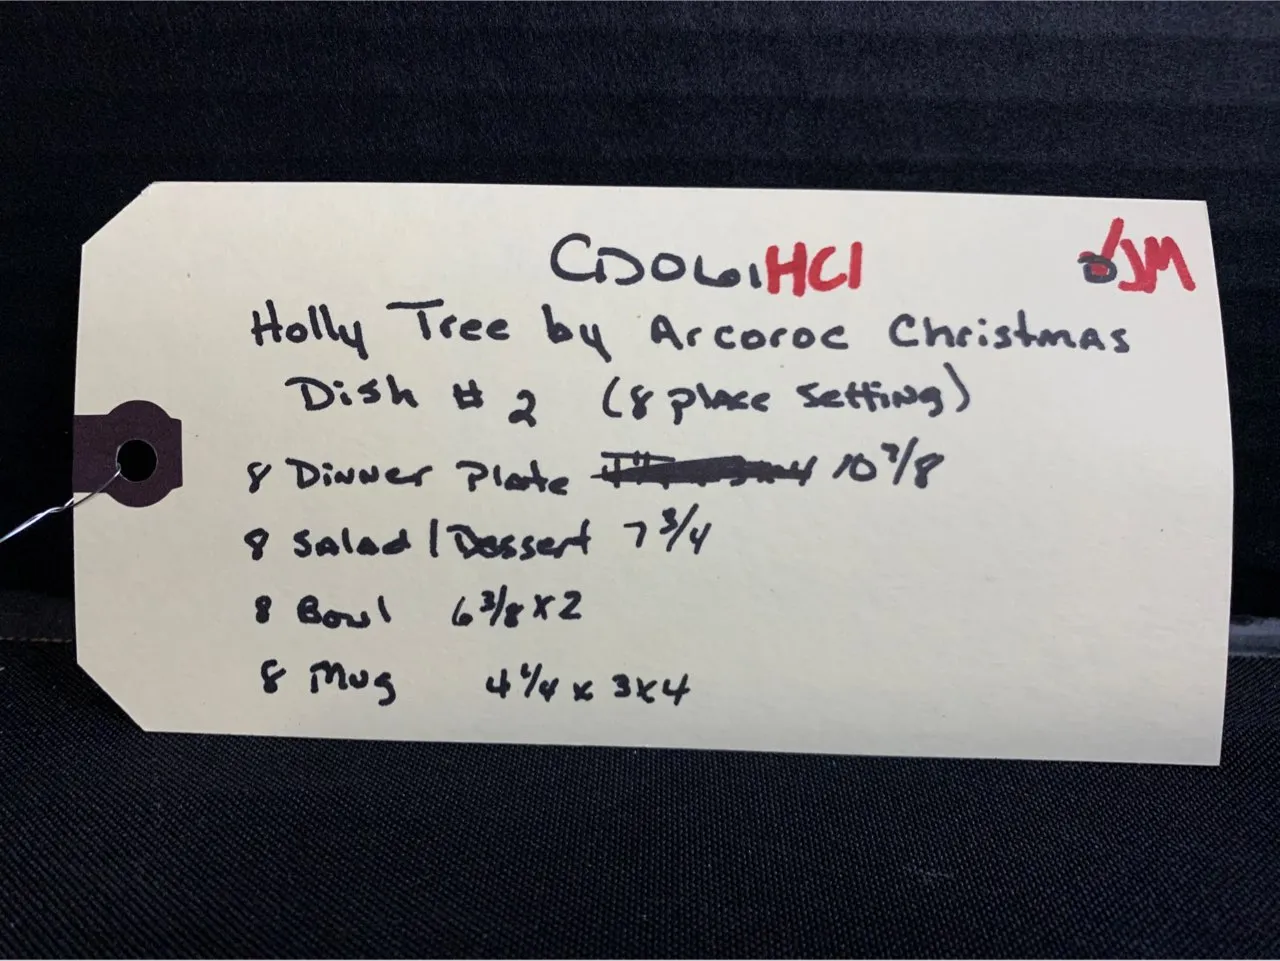 CD061HC1 JM
Holly Tree by Arcoroc Christmas
Dish # 2 (8 place setting)
8 Dinner Plate 10 7/8
8 Salad / Dessert 7 3/4
8 Bowl 6 3/8 x 2
8 Mug 4 1/4 x 3 x 4